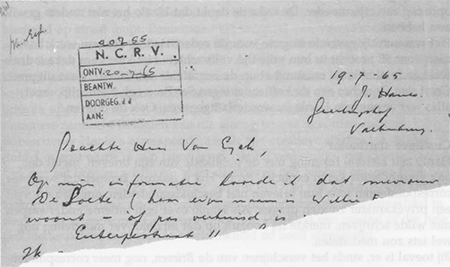 20255
N.C.R.V.
ONTV. 20-7-65
BEANTW.
DOORGEG. d.d
AAN:
19-7-65
J. 
Valkenburg
Geachte Heer Van Eyck,
Op mijn informatie hoorde ik dat mevrouw
De (haar eigen naam is Willie
woont - of pas verhuisd is
Euterpestraat 11
Ik